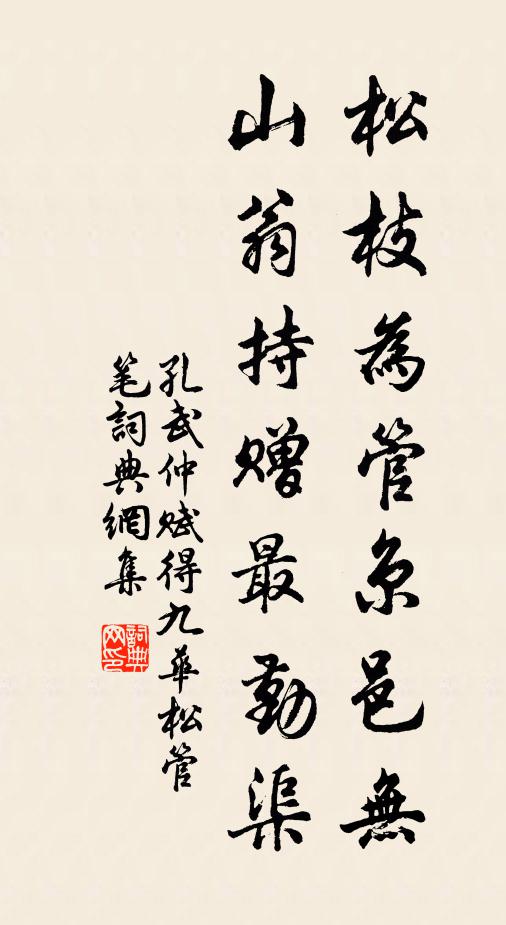 松枝為管京邑無
山翁持贈最勤渠
孔武仲賦得九華松管
笔詞典網集
詞典
网印